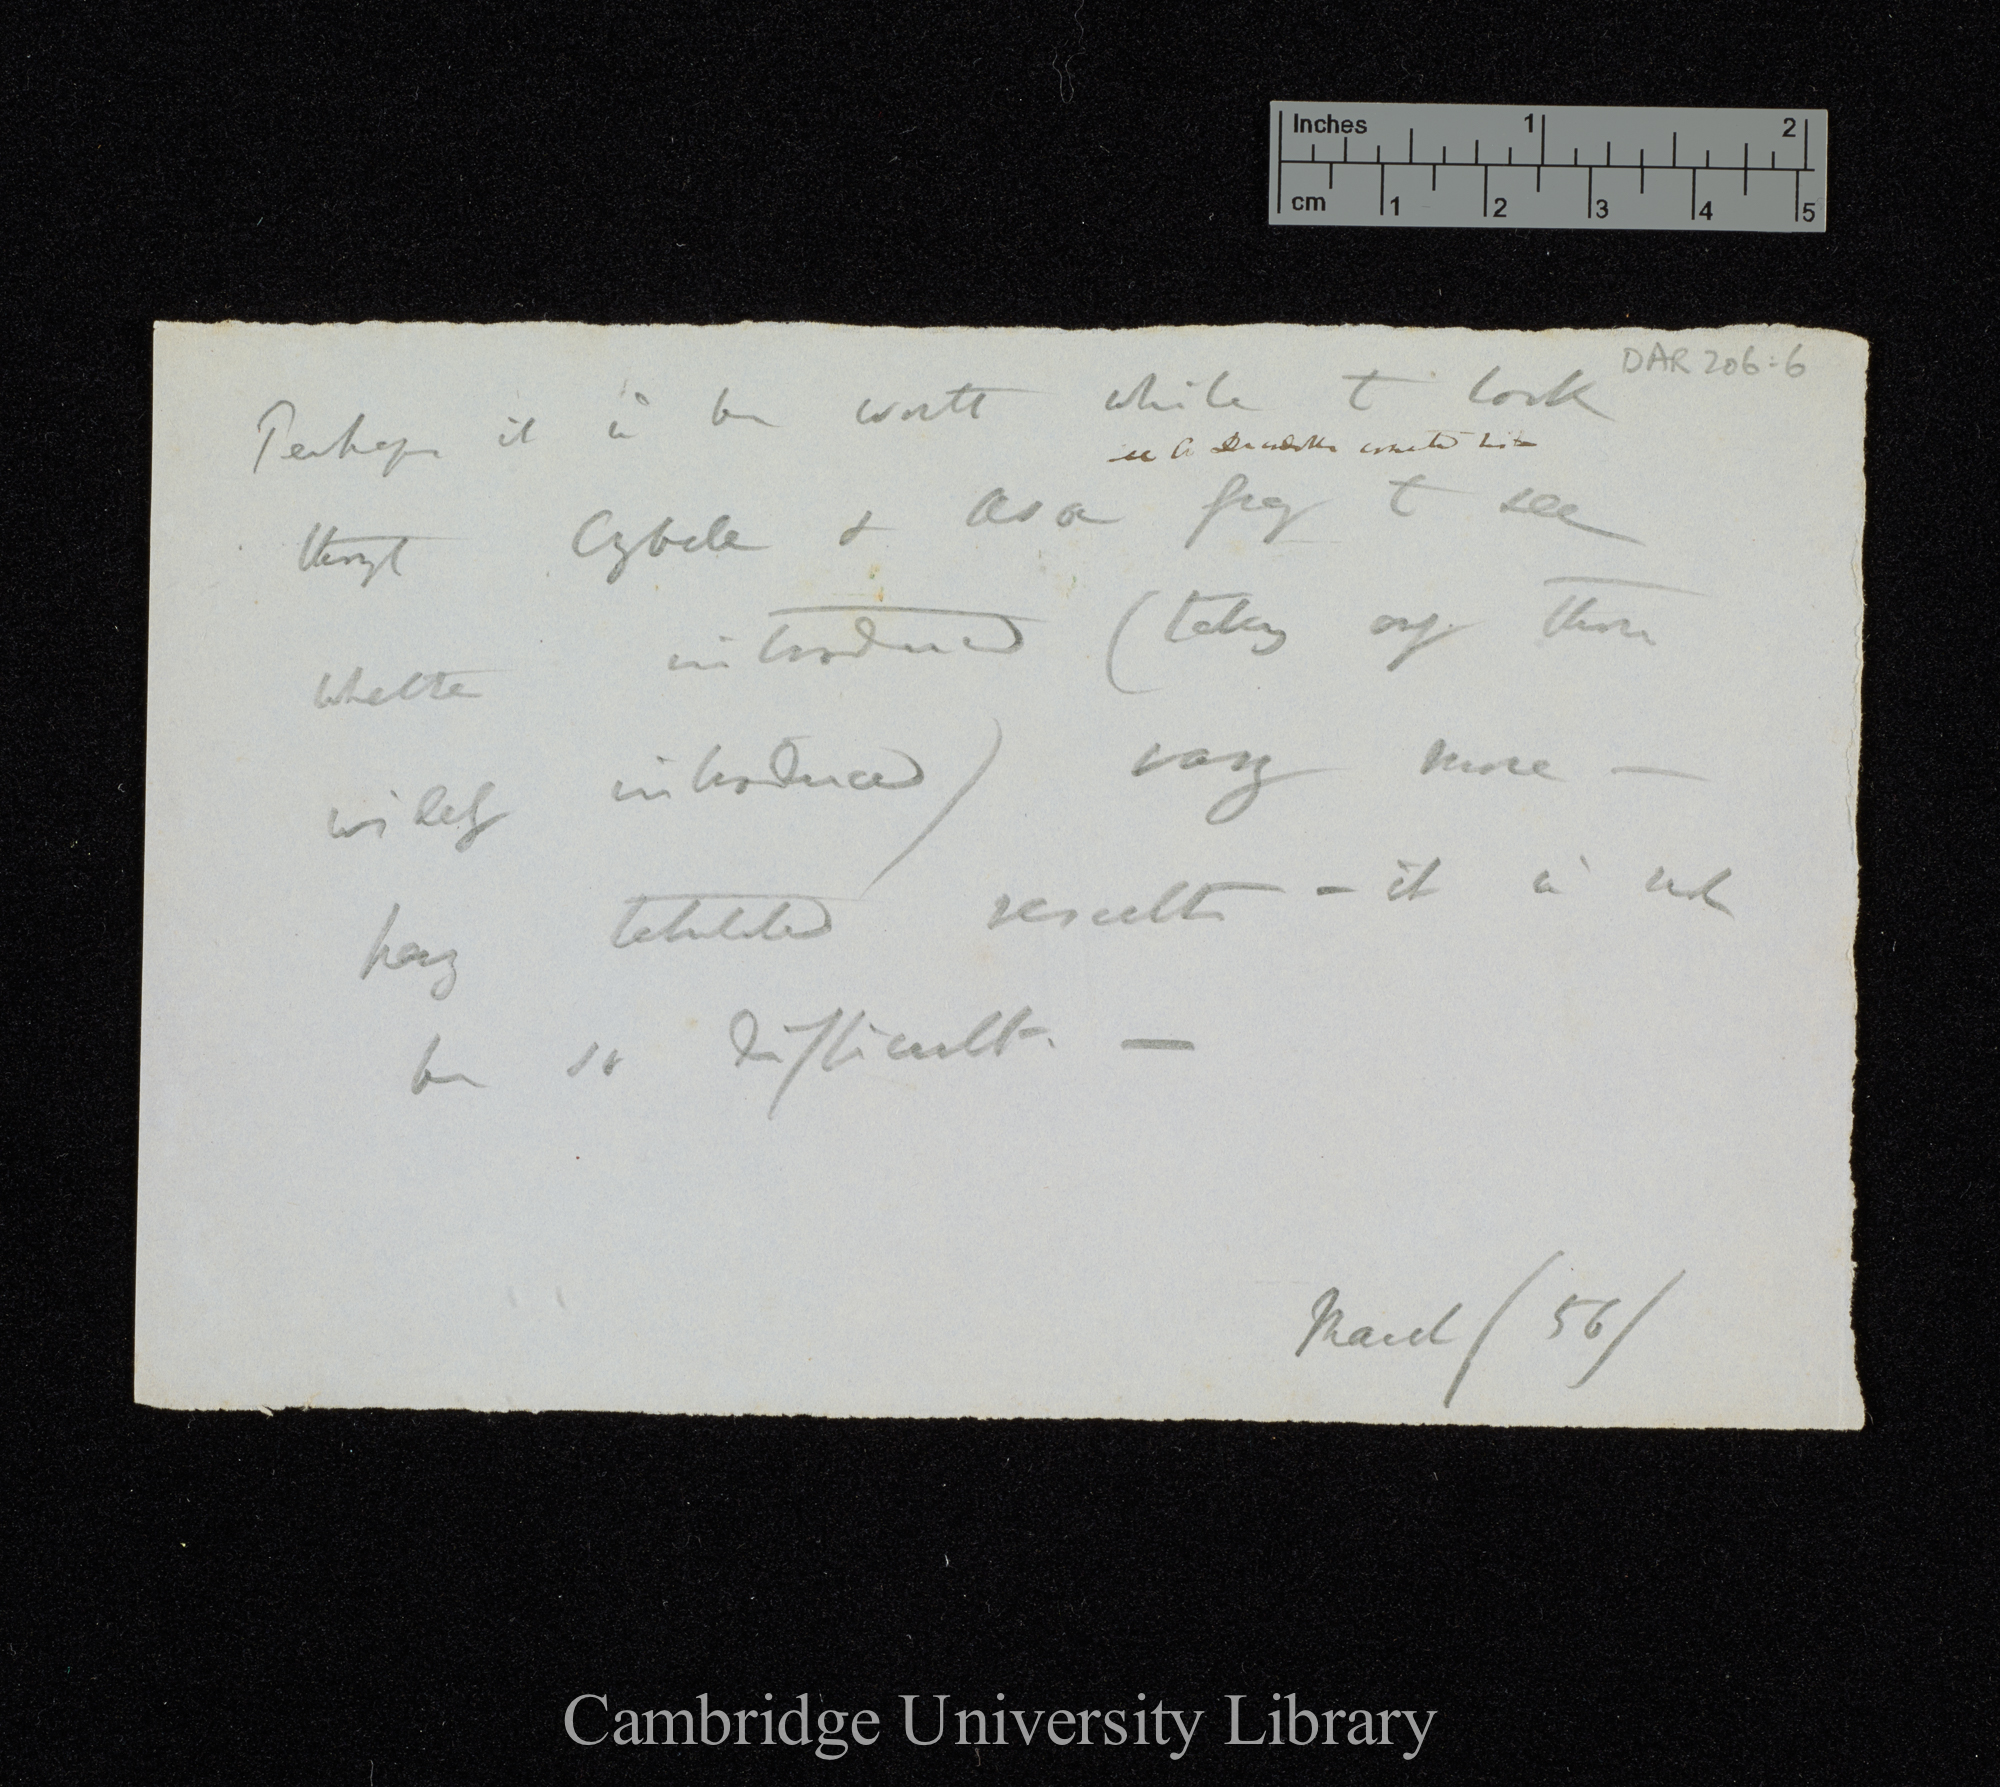 Inches 1 2
cm 1 2 3 4 5
DAR 206:6
Perhaps it wd be worth while to look
see A Decandolle
through Cybele & Asa Gray to see
whether introduced (taking only those
widely introduced) vary more —
having tabulated results — it wd not
be so difficult. —
March /56/
Cambridge University Library